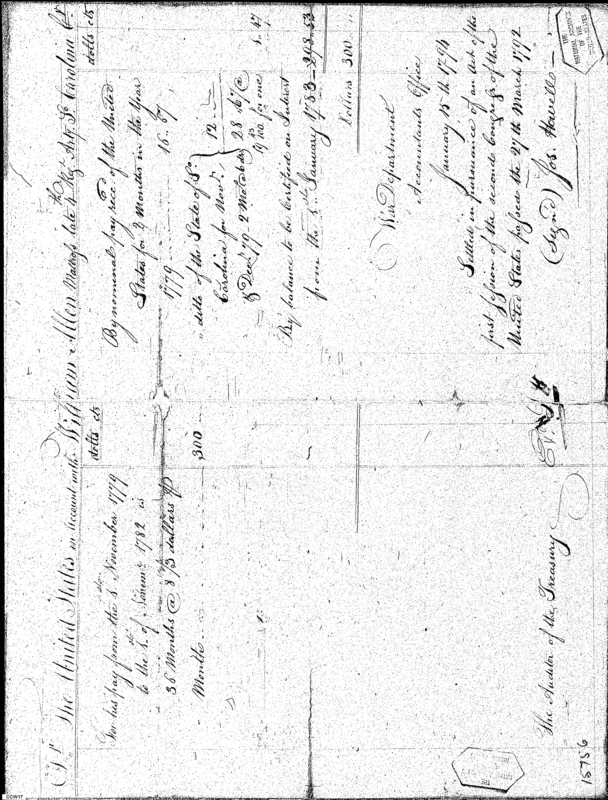 Dr. The United States in account with William Allen Matross late 4th Regt. Arty. So. Carolina Cr.
dolls cts
For his pay from the 1st November 1779
to the 1st of Novemr. 1782 is
36 Months @ 8 1/3 dollars P
Month 300
dolls cts
By nominal pay rece'd of the United
States for 2 Months in the Year
1779 16.67
" ditto of the State of So.
Carolina for Novr.
& Decr. 79. 2 Months
12
28.67 @
for one
1.47
By balance to be Certified on Interest
from the 1st January 1783 298.53
Dollars 300
War Department
Accountants Office
January 15th 1794
Settled in pursuance of an Act of the
first Session of the second Congress of the
United States passed the 27th March 1792
(Signd) Jos. Howell
The Auditor of the Treasury
15756
THE
NATIONAL ARCHIVES
OF THE
UNITED STATES